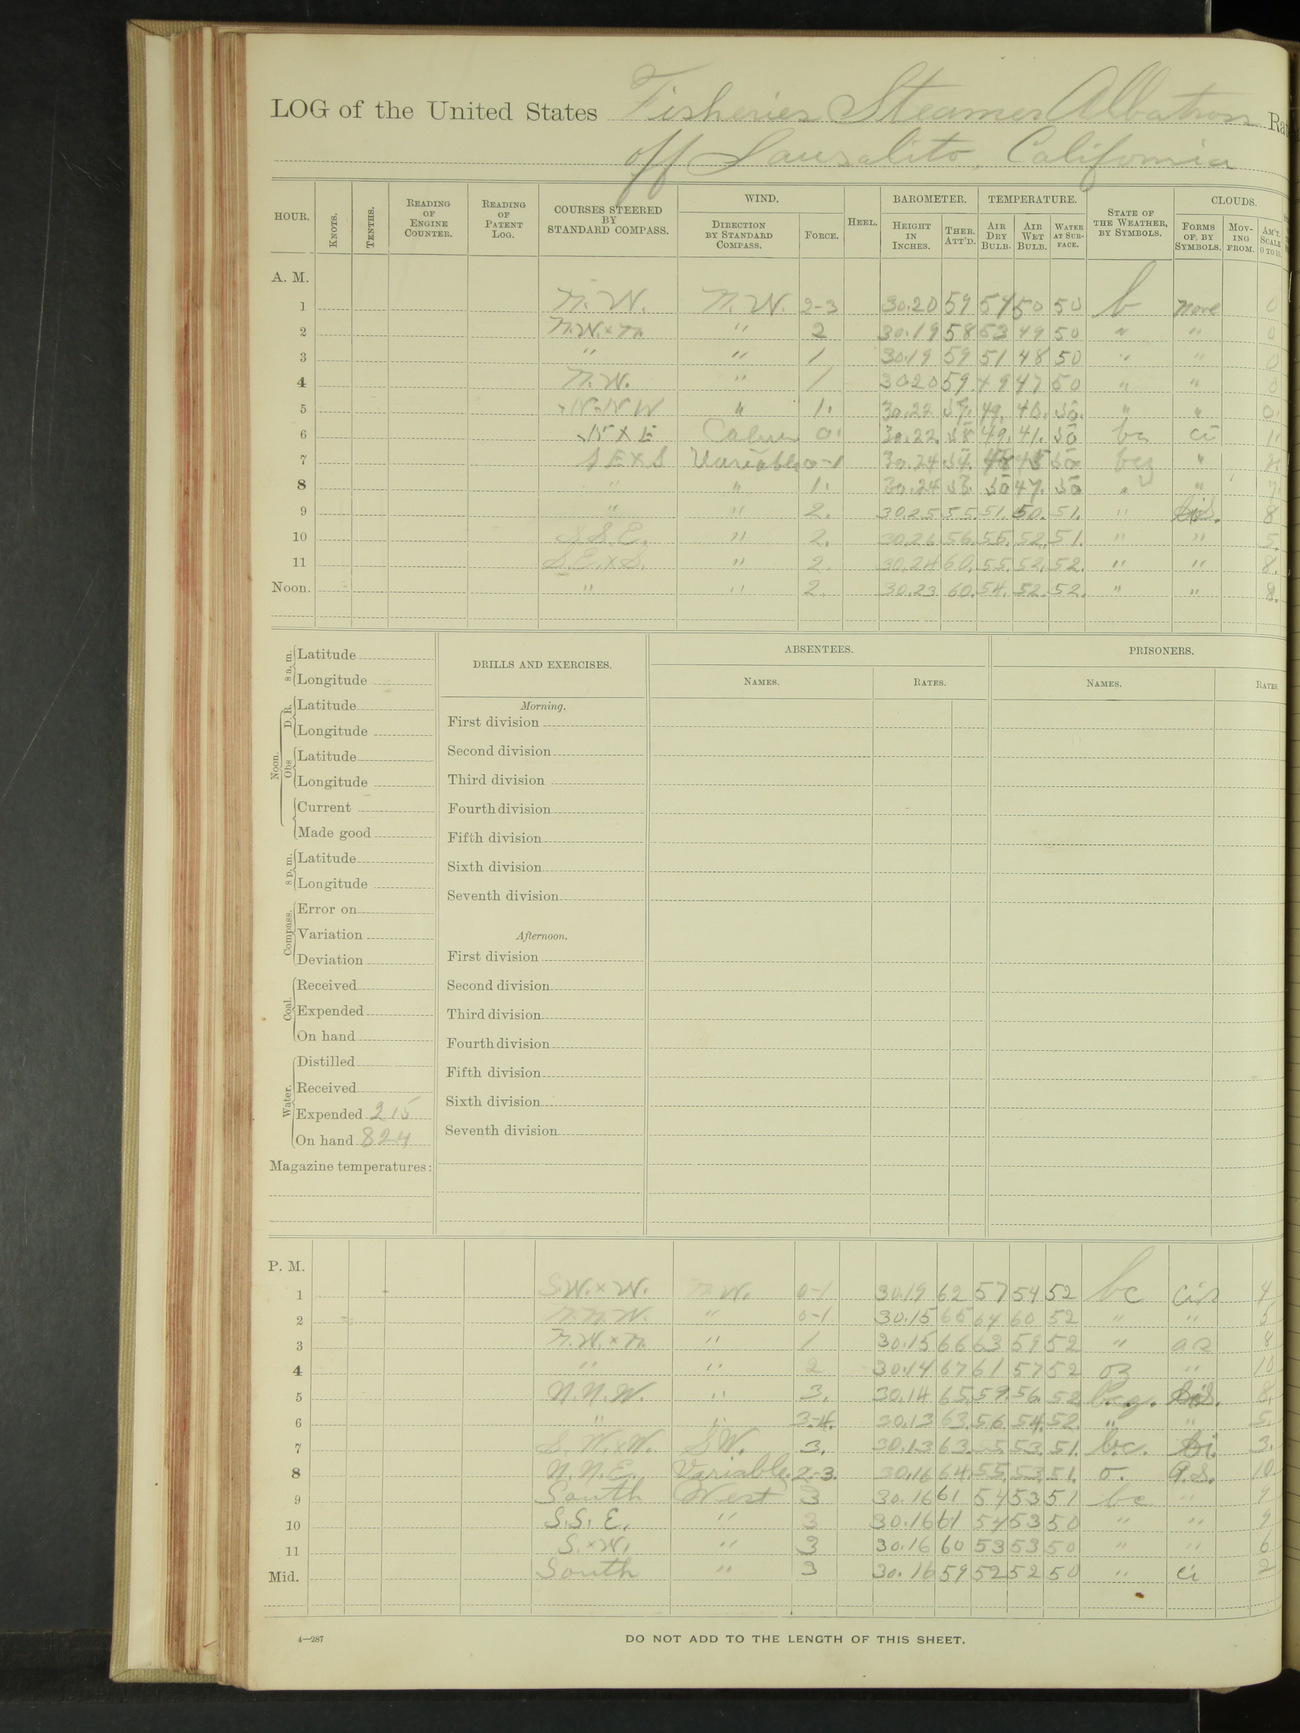 LOG of the United States Fisheries Steamer Albatross Ra
off Sausalito, California
HOUR. KNOTS. TENTHS. READING OF ENGINE COUNTER. READING OF PATENT LOG. COURSES STEERED BY STANDARD COMPASS. WIND. DIRECTION BY STANDARD COMPASS. FORCE. HEEL. BAROMETER. HEIGHT IN INCHES. THER. ATT'D. TEMPERATURE. AIR DRY BULB. AIR WET BULB. WATER AT SURFACE. STATE OF THE WEATHER, BY SYMBOLS. CLOUDS. FORMS OF, BY SYMBOLS. MOVING FROM. AM'T. SCALE 0 TO 10.
A. M.
1 N.W. N.W. 2-3 30.20 59 54 50 50 b none 0
2 N.W.×N. " 2 30.19 58 53 49 50 " " 0
3 " " 1 30.19 59 51 48 50 " " 0
4 N.W. " 1 30.20 59 49 47 50 " " 0
5 N.N.W " 1. 30.22 59. 49. 48. 50. " " 0
6 N×E Calm 0 30.22 58 49. 41. 50 bc ci 1
7 SE×S Variable 0-1 30.24 50 bcz "
8 " " 1. 30.24 50 47. 50 " " 7
9 " " 2. 30.25 55. 51. 50. 51. " 8
10 S.S.E. " 2. 30.26 56. 55. 52. 51. " " 5.
11 S.E.×S. " 2. 30.24 60. 55. 52. 52. " " 8.
Noon. " " 2. 30.23 60. 54. 52. 52. " " 8.
8 a.m. Latitude
Longitude
Noon. D. R. Latitude
Longitude
Obs Latitude
Longitude
Current
Made good
8 p.m. Latitude
Longitude
Compass. Error on
Variation
Deviation
Coal. Received
Expended
On hand
Water. Distilled
Received
Expended 215
On hand 824
Magazine temperatures:
DRILLS AND EXERCISES.
Morning.
First division
Second division
Third division
Fourth division
Fifth division
Sixth division
Seventh division
Afternoon.
First division
Second division
Third division
Fourth division
Fifth division
Sixth division
Seventh division
ABSENTEES.
NAMES. RATES.
PRISONERS.
NAMES. RATES
P. M.
1 S.W.×W. N.W. 0-1 30.19 62 57 54 52 bc cis 4
2 N.N.W. " 0-1 30.15 65 64 60 52 " " 5
3 N.W.×N. " 1 30.15 66 63 59 52 " as 8
4 " " 2 30.14 67 61 57 52 oz " 10
5 N.N.W. " 3. 30.14 65. 59. 56. 52 b.c.z. 8.
6 " " 3-4. 30.13 63. 56. 54. 52. " " 5.
7 S.W.×W. SW. 3. 30.13 63. 55 53. 51. b.c. 3.
8 N.N.E. Variable 2-3. 30.16 64. 55. 53. 51. o. A.S. 10
9 South West 3 30.16 61 54 53 51 bc " 9
10 S.S.E. " 3 30.16 61 54 53 50 " " 9
11 S.×W. " 3 30.16 60 53 53 50 " " 6
Mid. South " 3 30.16 59 52 52 50 " ci 2
4—287
DO NOT ADD TO THE LENGTH OF THIS SHEET.